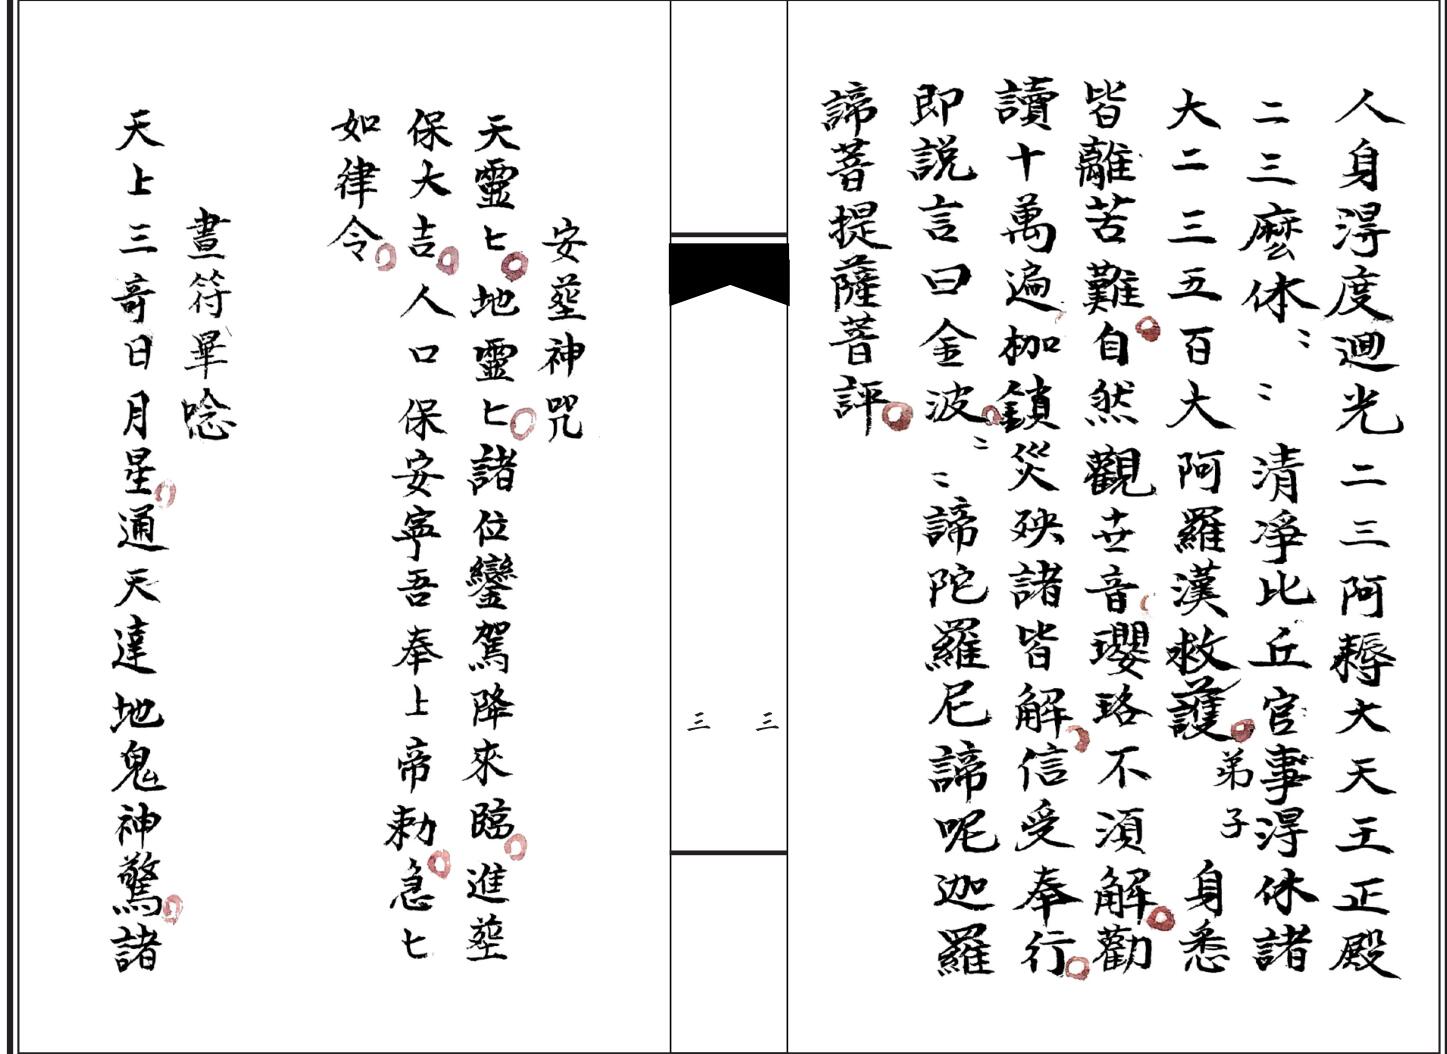 人身淂度迴光二三阿耨大天王正殿
二三麽休〻〻清淨比丘官事淂休諸
大二三五百大阿羅漢救護弟子身悉
皆離苦難自然觀世音瓔珞不須解勸
讀十萬遍枷鎖災殃諸皆解信受奉行
即説言曰金波〻〻諦陀羅尼諦呢迦羅
諦菩提薩菩評
三
三
安蓥神咒
天靈匕地靈匕諸位鑾駕降來臨進蓥
保大吉人口保安寧吾奉上帝勅急匕
如律令
畫符畢唸
天上三奇日月星通天達地鬼神驚諸